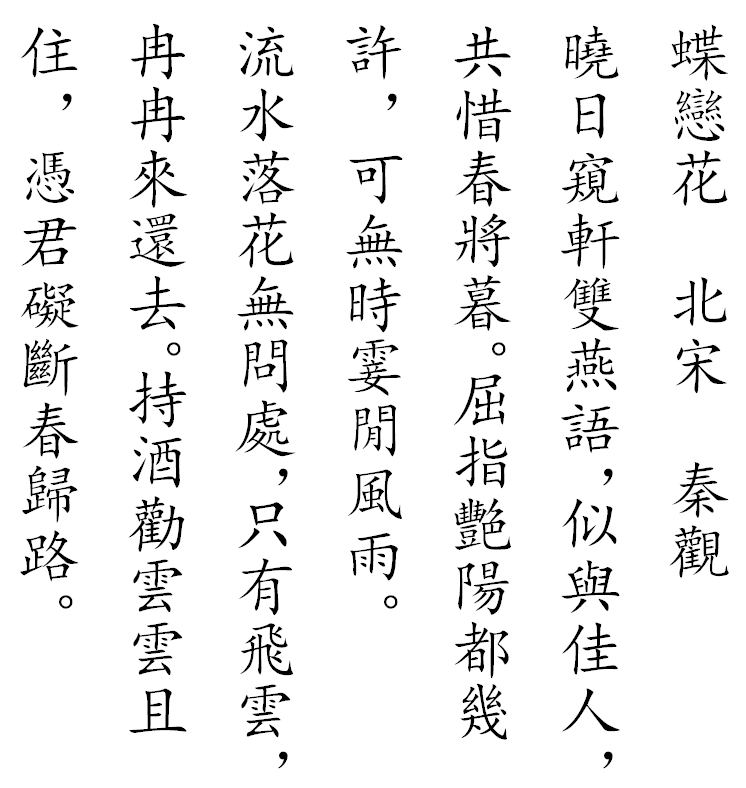 蝶戀花　北宋　秦觀
曉日窺軒雙燕語，似與佳人，
共惜春將暮。屈指艷陽都幾
許，可無時霎閒風雨。
流水落花無問處，只有飛雲，
冉冉來還去。持酒勸雲雲且
住，憑君礙斷春歸路。